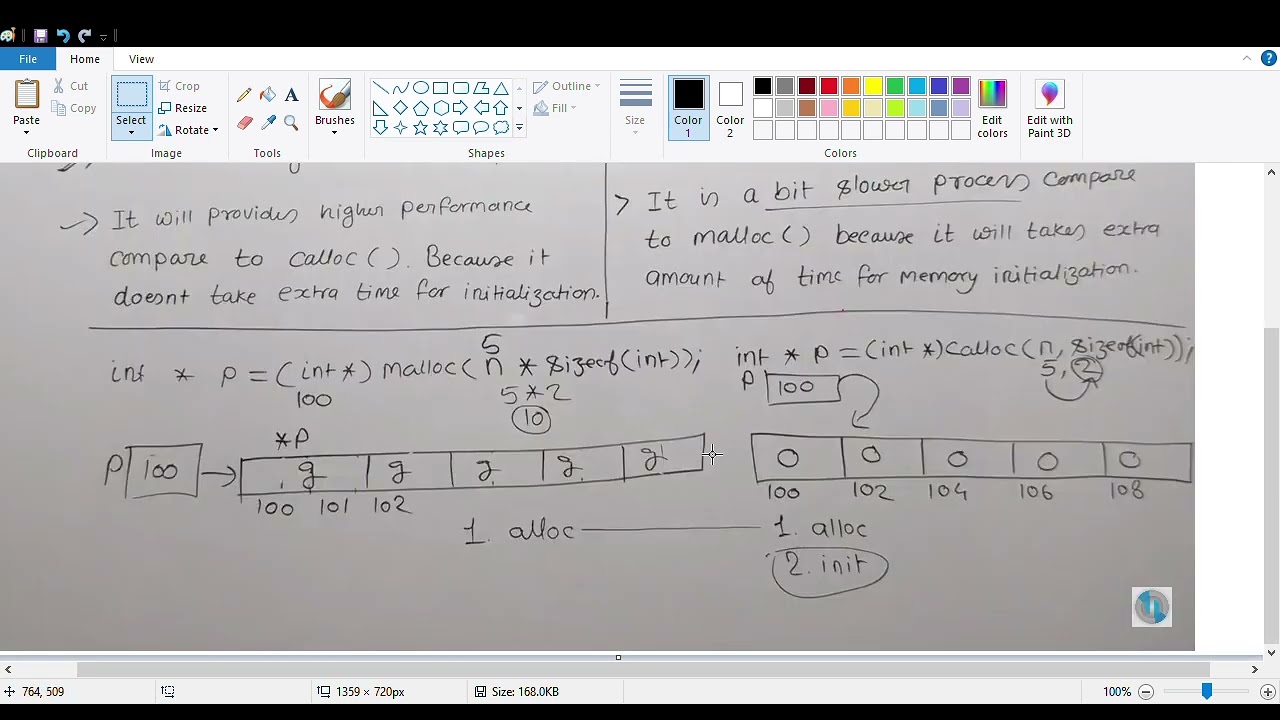 File Home View
Paste Cut Copy Clipboard
Select Crop Resize Rotate Image
Tools
Brushes
Shapes Outline Fill
Size
Color 1 Color 2 Edit colors Edit with Paint 3D
Colors
It will provides higher performance
compare to calloc(). Because it
doesnt take extra time for initialization.
> It is a bit slower process compare
to malloc() because it will takes extra
amount of time for memory initialization.
5
int * p = (int*) malloc(n * sizeof(int));
100 5*2
10
int * p = (int*)calloc(n, sizeof(int));
5, 2
p 100
*p
p 100
g g g g g
100 101 102
0 0 0 0 0
100 102 104 106 108
1. alloc
1. alloc
2. init
764, 509 1359 × 720px Size: 168.0KB 100%